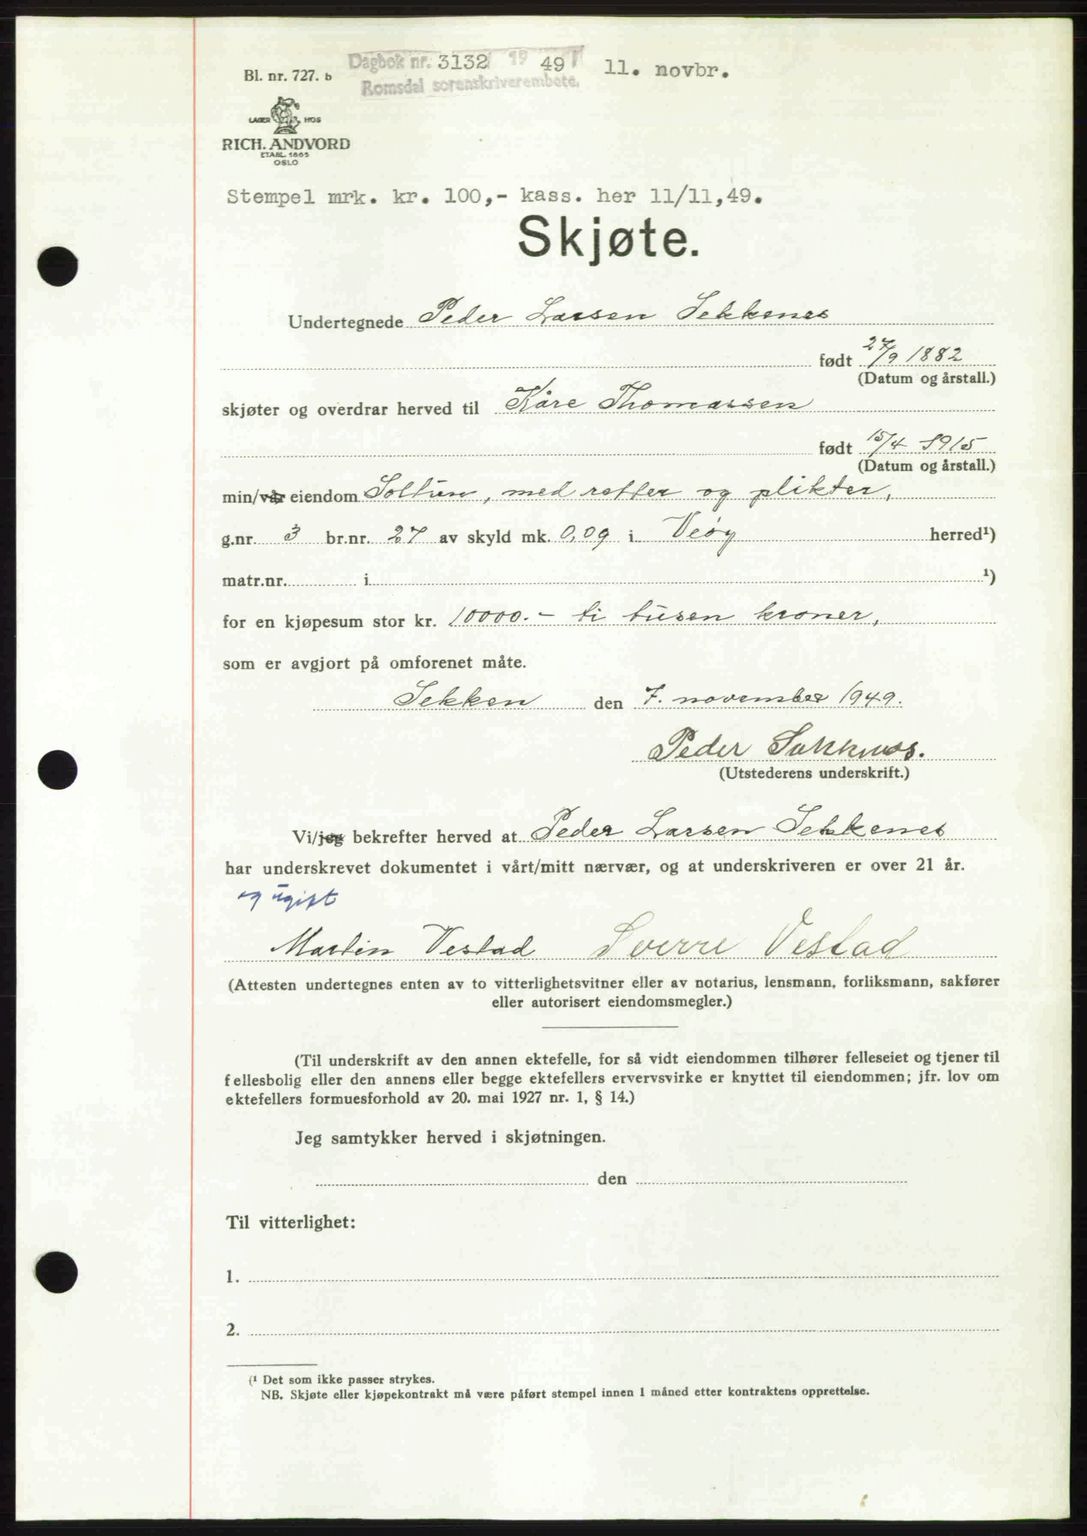 Dagbok nr. 3132 19 49 11. novbr.
Romsdal sorenskriverembete.
Bl. nr. 727. b
LAGER HOS
RICH. ANDVORD
ETABL. 1865
OSLO
Stempel mrk. kr. 100,- kass. her 11/11,49.
Skjøte.
Undertegnede Peder Larsen Sekkenes
født 27/9 1882
(Datum og årstall.)
skjøter og overdrar herved til Kåre Thomassen
født 15/4 1915
(Datum og årstall.)
min/vår eiendom Soltun, med retter og plikter,
g.nr. 3 br.nr. 27 av skyld mk. 0,09 i Veøy herred¹)
matr.nr. i ¹)
for en kjøpesum stor kr. 10000.- ti tusen kroner,
som er avgjort på omforenet måte.
Sekken den 7. november 1949.
Peder Sekknes.
(Utstederens underskrift.)
Vi/jeg bekrefter herved at Peder Larsen Sekkenes
har underskrevet dokumentet i vårt/mitt nærvær, og at underskriveren er over 21 år.
og ugift
Martin Vestad Sverre Vestad
(Attesten undertegnes enten av to vitterlighetsvitner eller av notarius, lensmann, forliksmann, sakfører
eller autorisert eiendomsmegler.)
(Til underskrift av den annen ektefelle, for så vidt eiendommen tilhører felleseiet og tjener til
fellesbolig eller den annens eller begge ektefellers ervervsvirke er knyttet til eiendommen; jfr. lov om
ektefellers formuesforhold av 20. mai 1927 nr. 1, § 14.)
Jeg samtykker herved i skjøtningen.
den
Til vitterlighet:
1.
2.
(¹ Det som ikke passer strykes.
NB. Skjøte eller kjøpekontrakt må være påført stempel innen 1 måned etter kontraktens opprettelse.